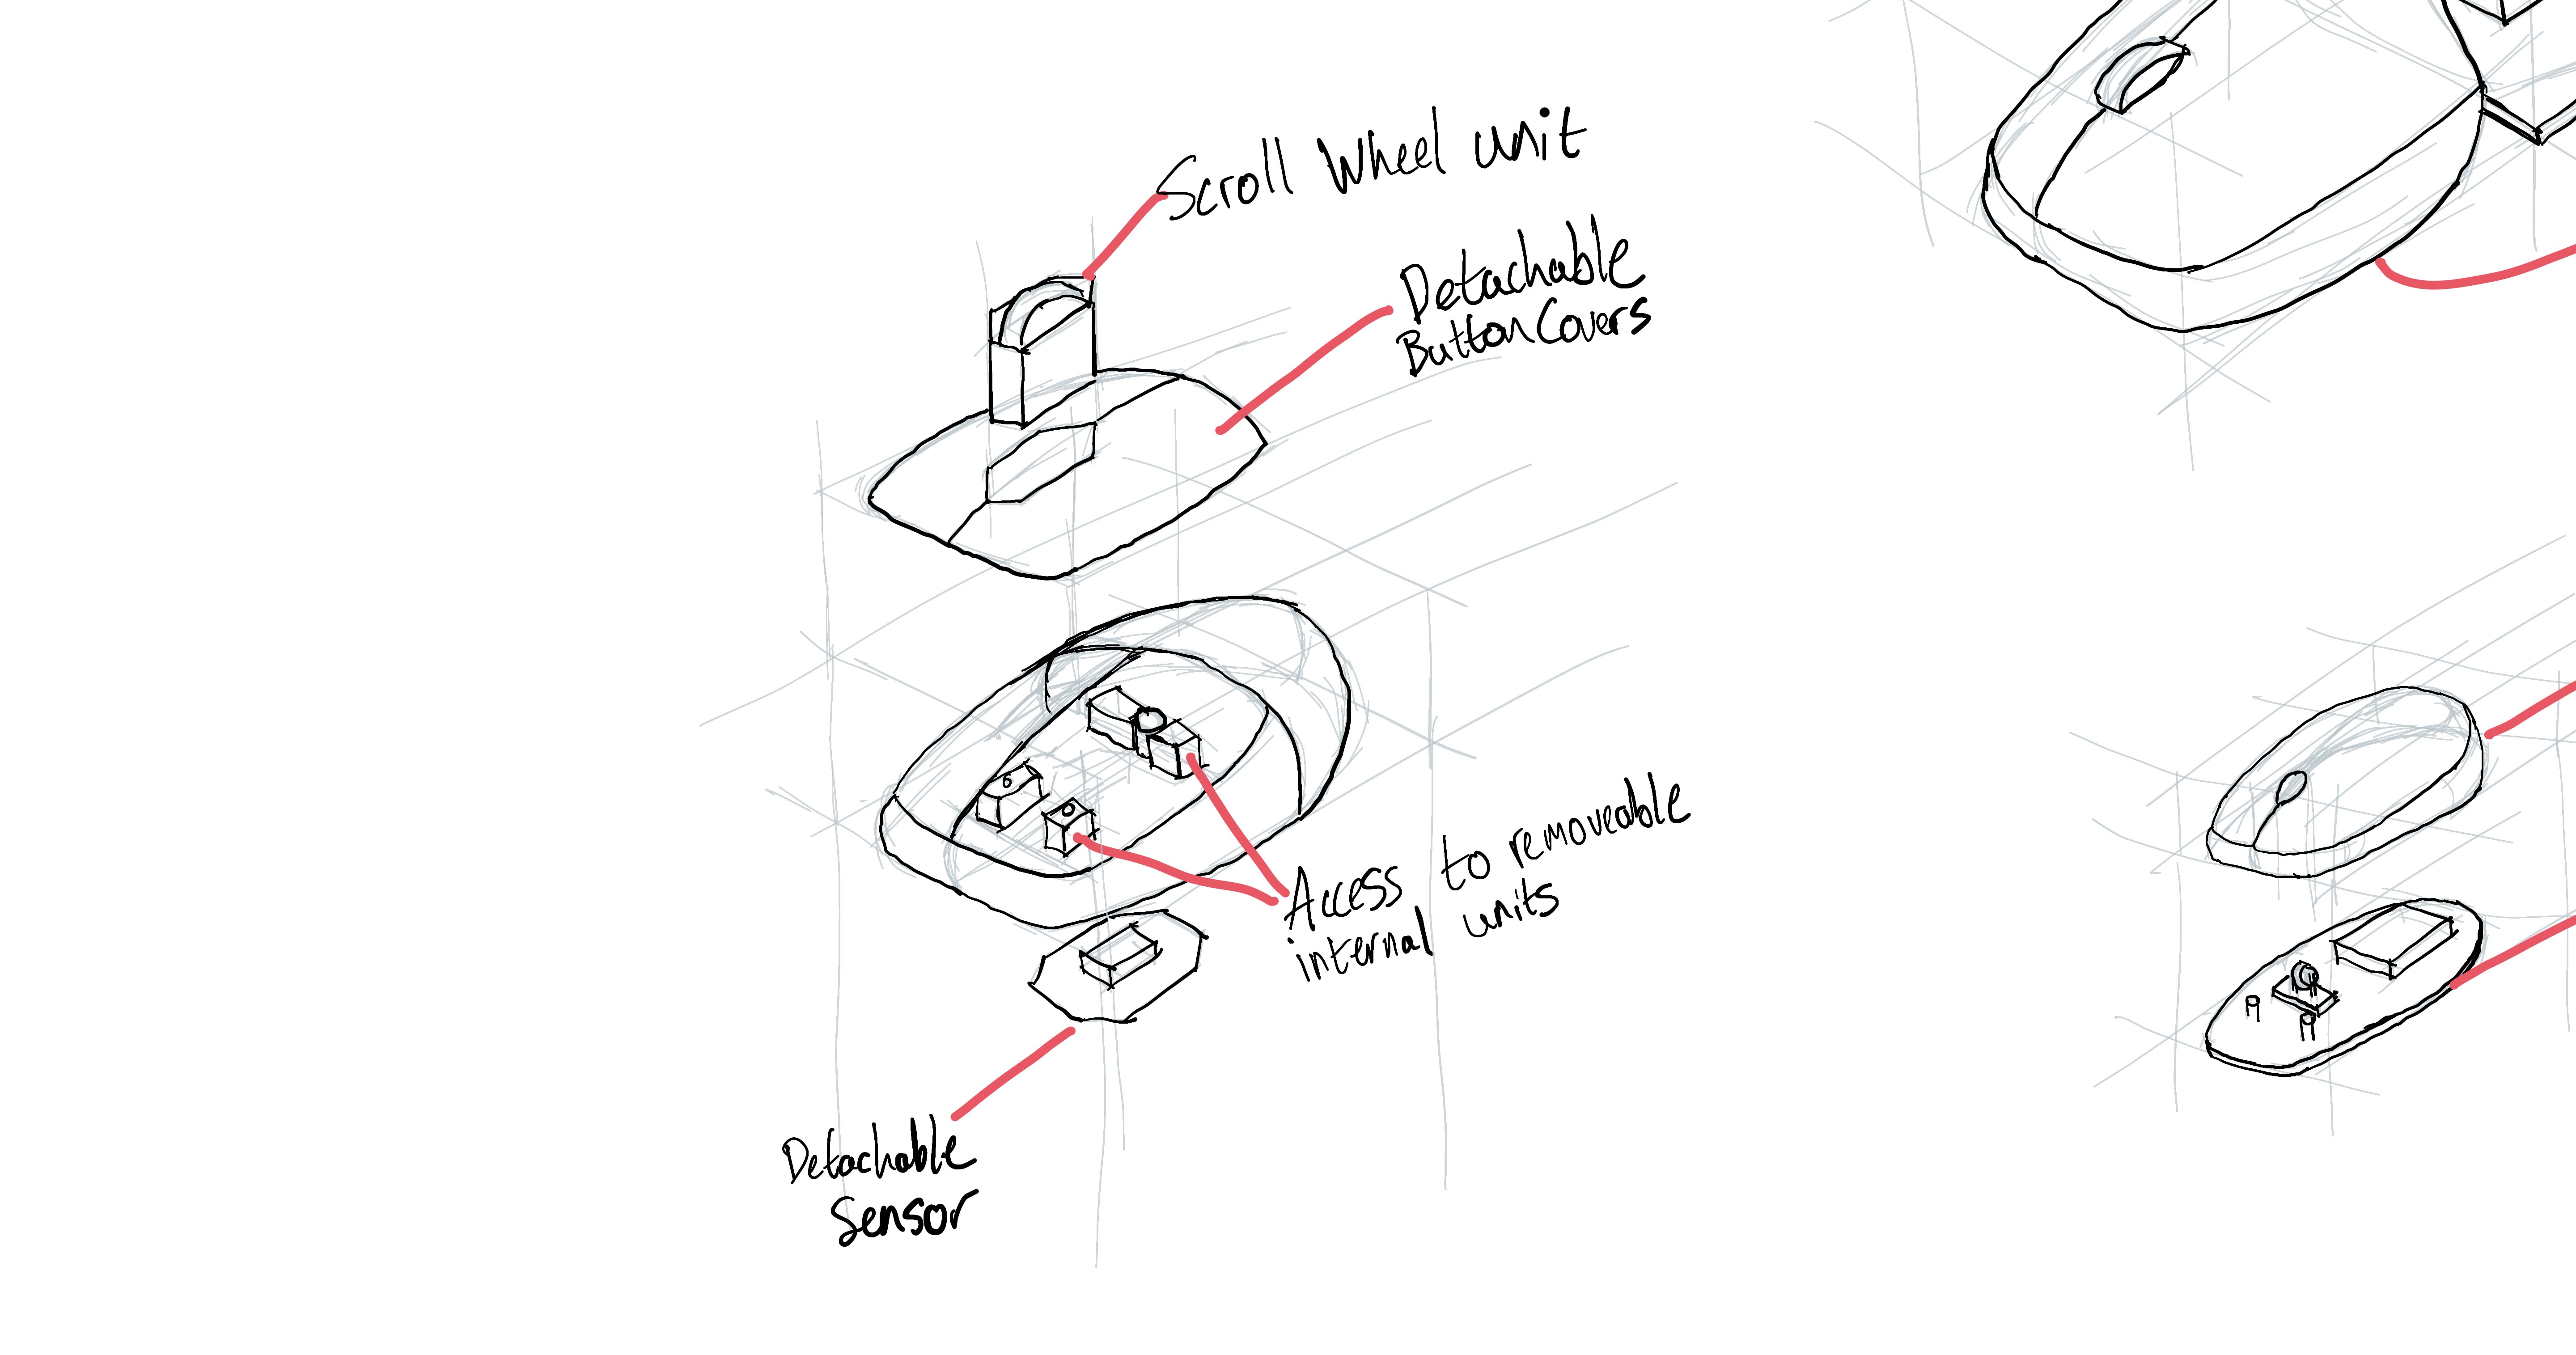 Scroll Wheel unit
Detachable
Button Covers
Access to removeable
internal units
Detachable
Sensor